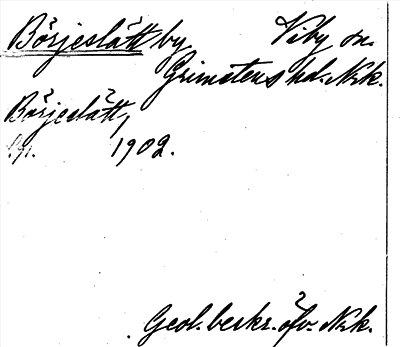 Börjeslätt by Viby sn.
Grimstens hd. Nrk.
Börjeslätt,
1902.
Geol. beskr. öfv. Nrk.